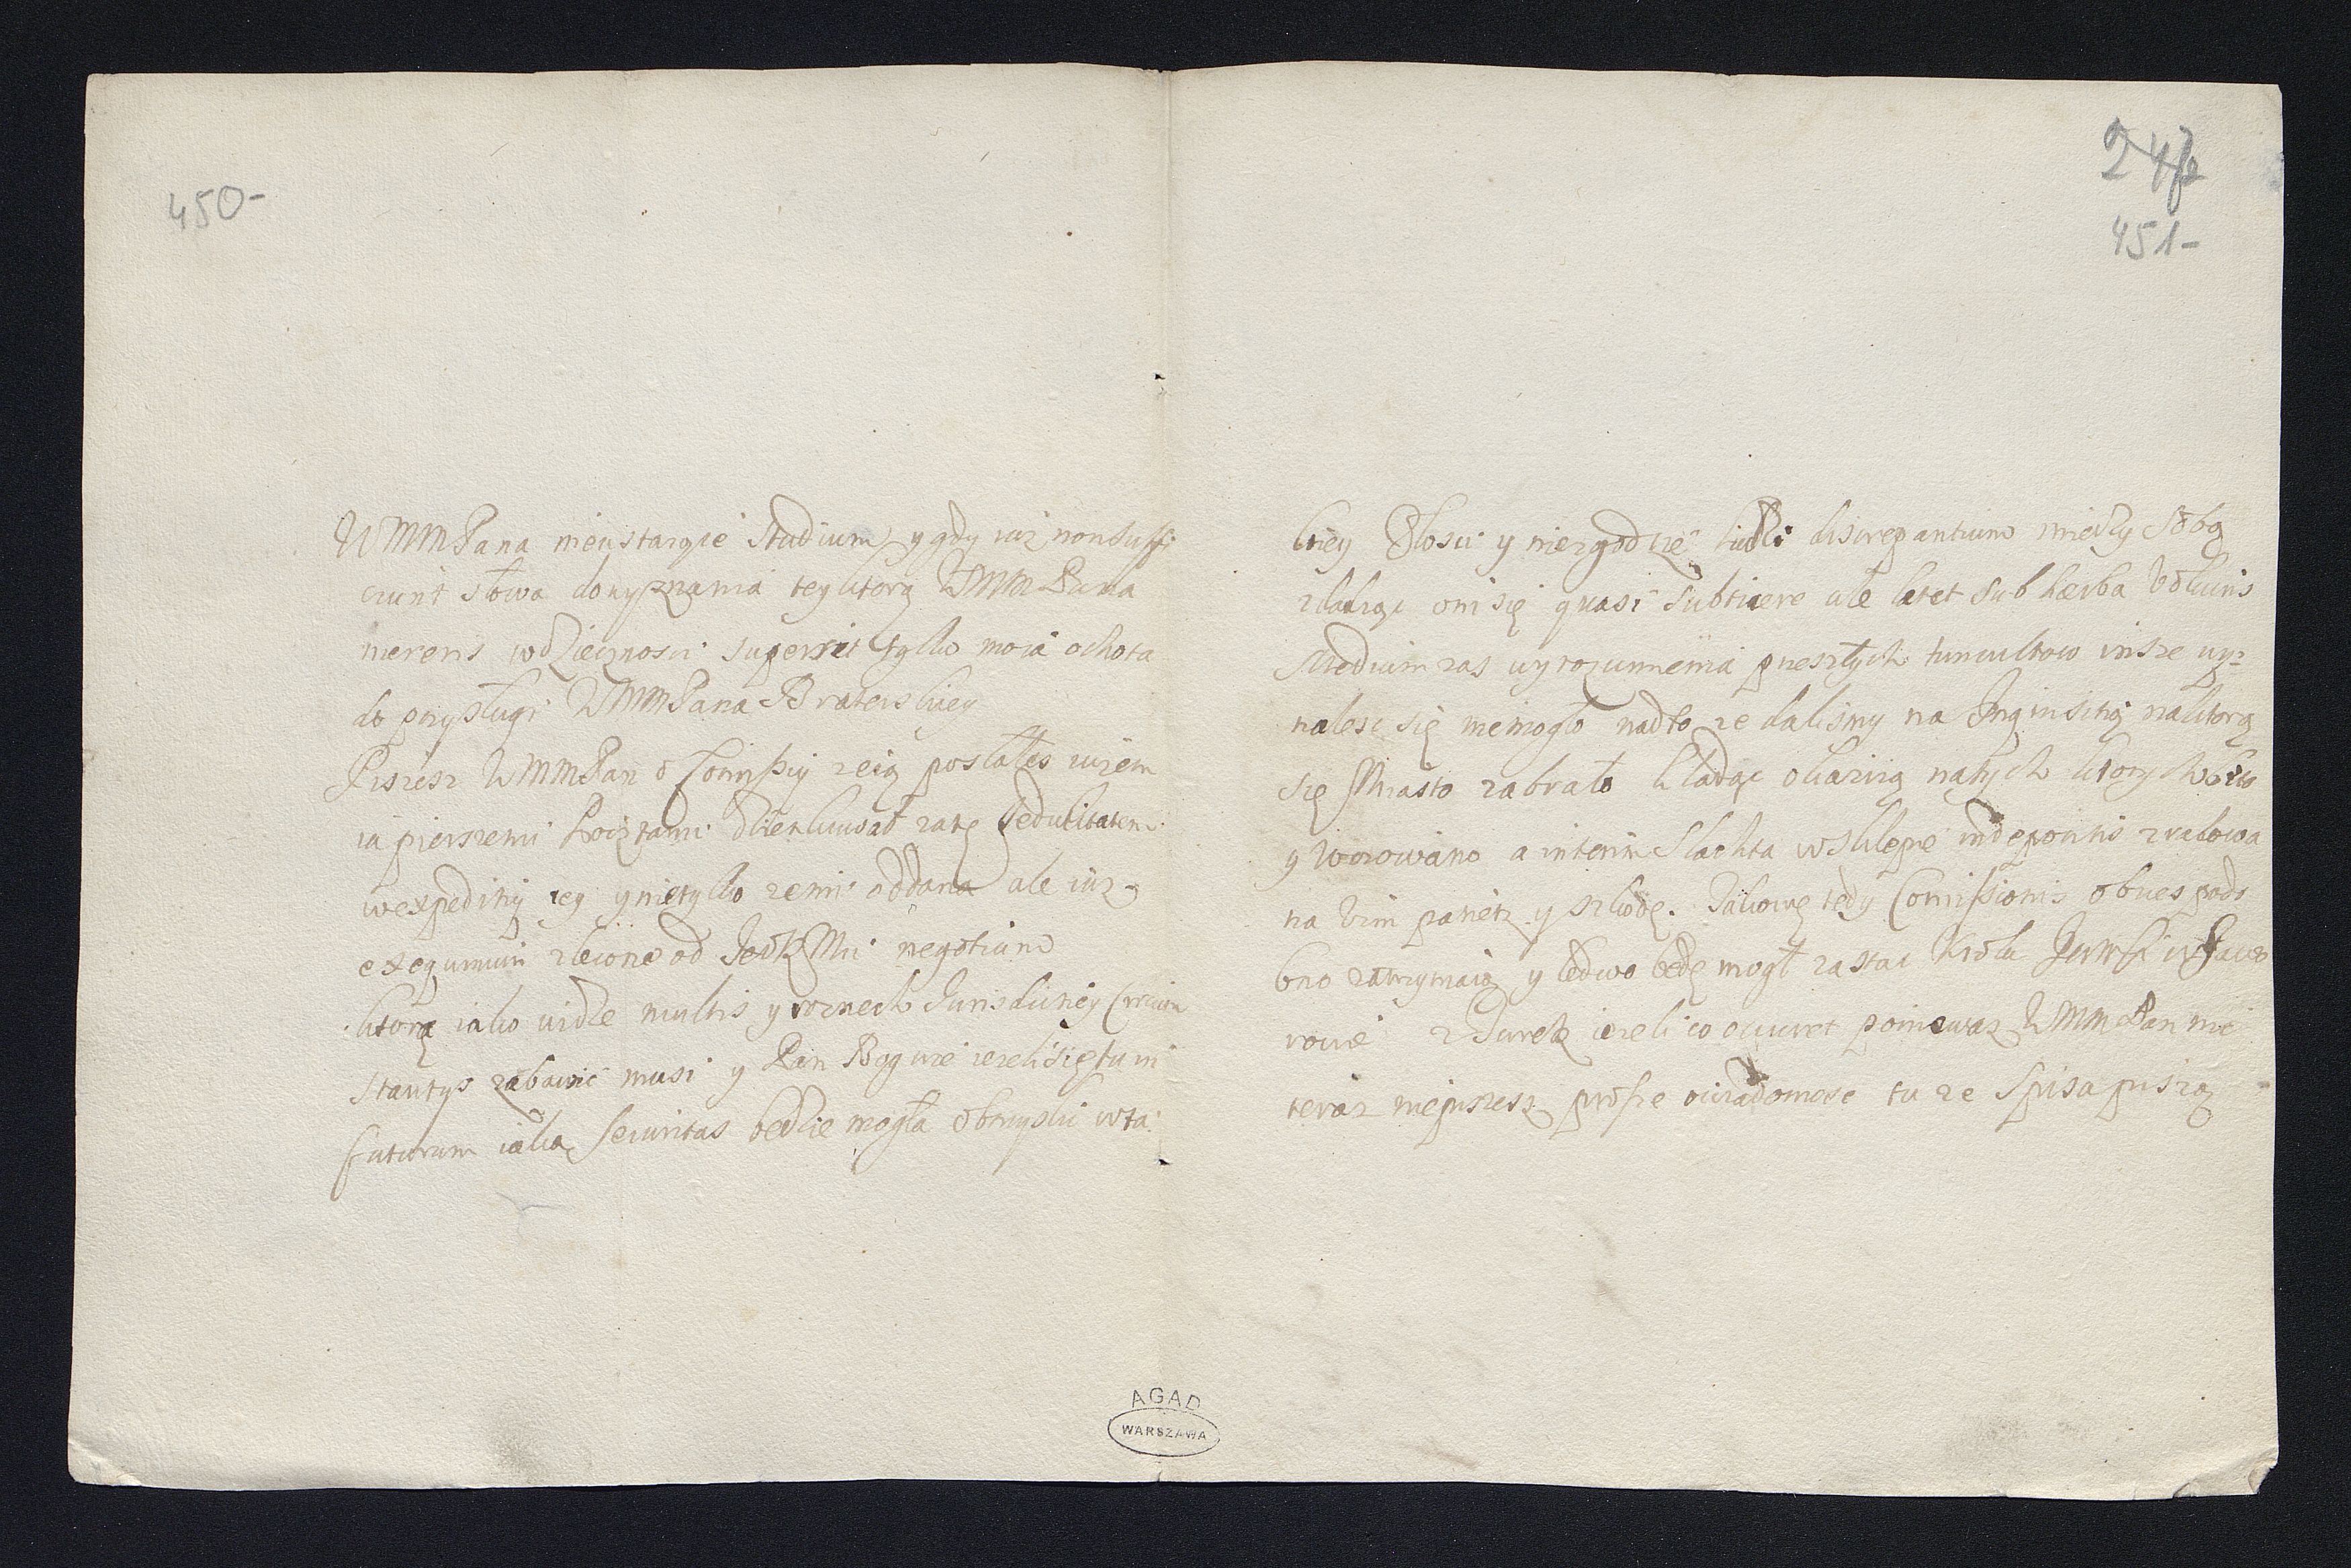 450-
WMMPana nieustaiące Studium, y gdy iuż non suffi
ciunt słowa do wyznania tey ktorą WMMPana
mereris wdzięcznosci superset tylko moia ochota
do przysługi WMMPana Braterskiey
Piszesz WMMPan o Comissiy żeią posłałes iużem
ia pierszemi Pocztami dziękuwał zatę sedulitatem
wexpeditiy iey y nietylko żemi oddana ale iusz
exequimur zlecone od JeoKMci negotium
ktorą iako widzę multis y roznech Jurisdictiey
Stantys zabawic musi y Pan Bog wie iezelisię tu in
futurum iaka securitas będzie mogła obmyslic wta
247
451-
kiey złosci y niezgodzie ludzi discrepantium między sobą
zdadząc oni się quasi subticere ale latet sub herba
Medium zas wyrozumienia przeszłych tumultow insze wy=
nalesc się niemogło nadto ze dalismy na Inquisitią naktorą
się Miasto zabrało kładąc okazią natych ktorych bito
y a interim Slachta wsklepie indepositis zrabowa
na Vim patietr y szkodę. Takowę tedy Comissionis obices podo
bno zatrzymaią y ledwo będę mogł zastac Krola
z Turek iezeli co occurret poniewasz WMMPan mi
teraz niepiszesz proszę owiadomosc tu ze Spisa piszą
AGAD
WARSZAWA